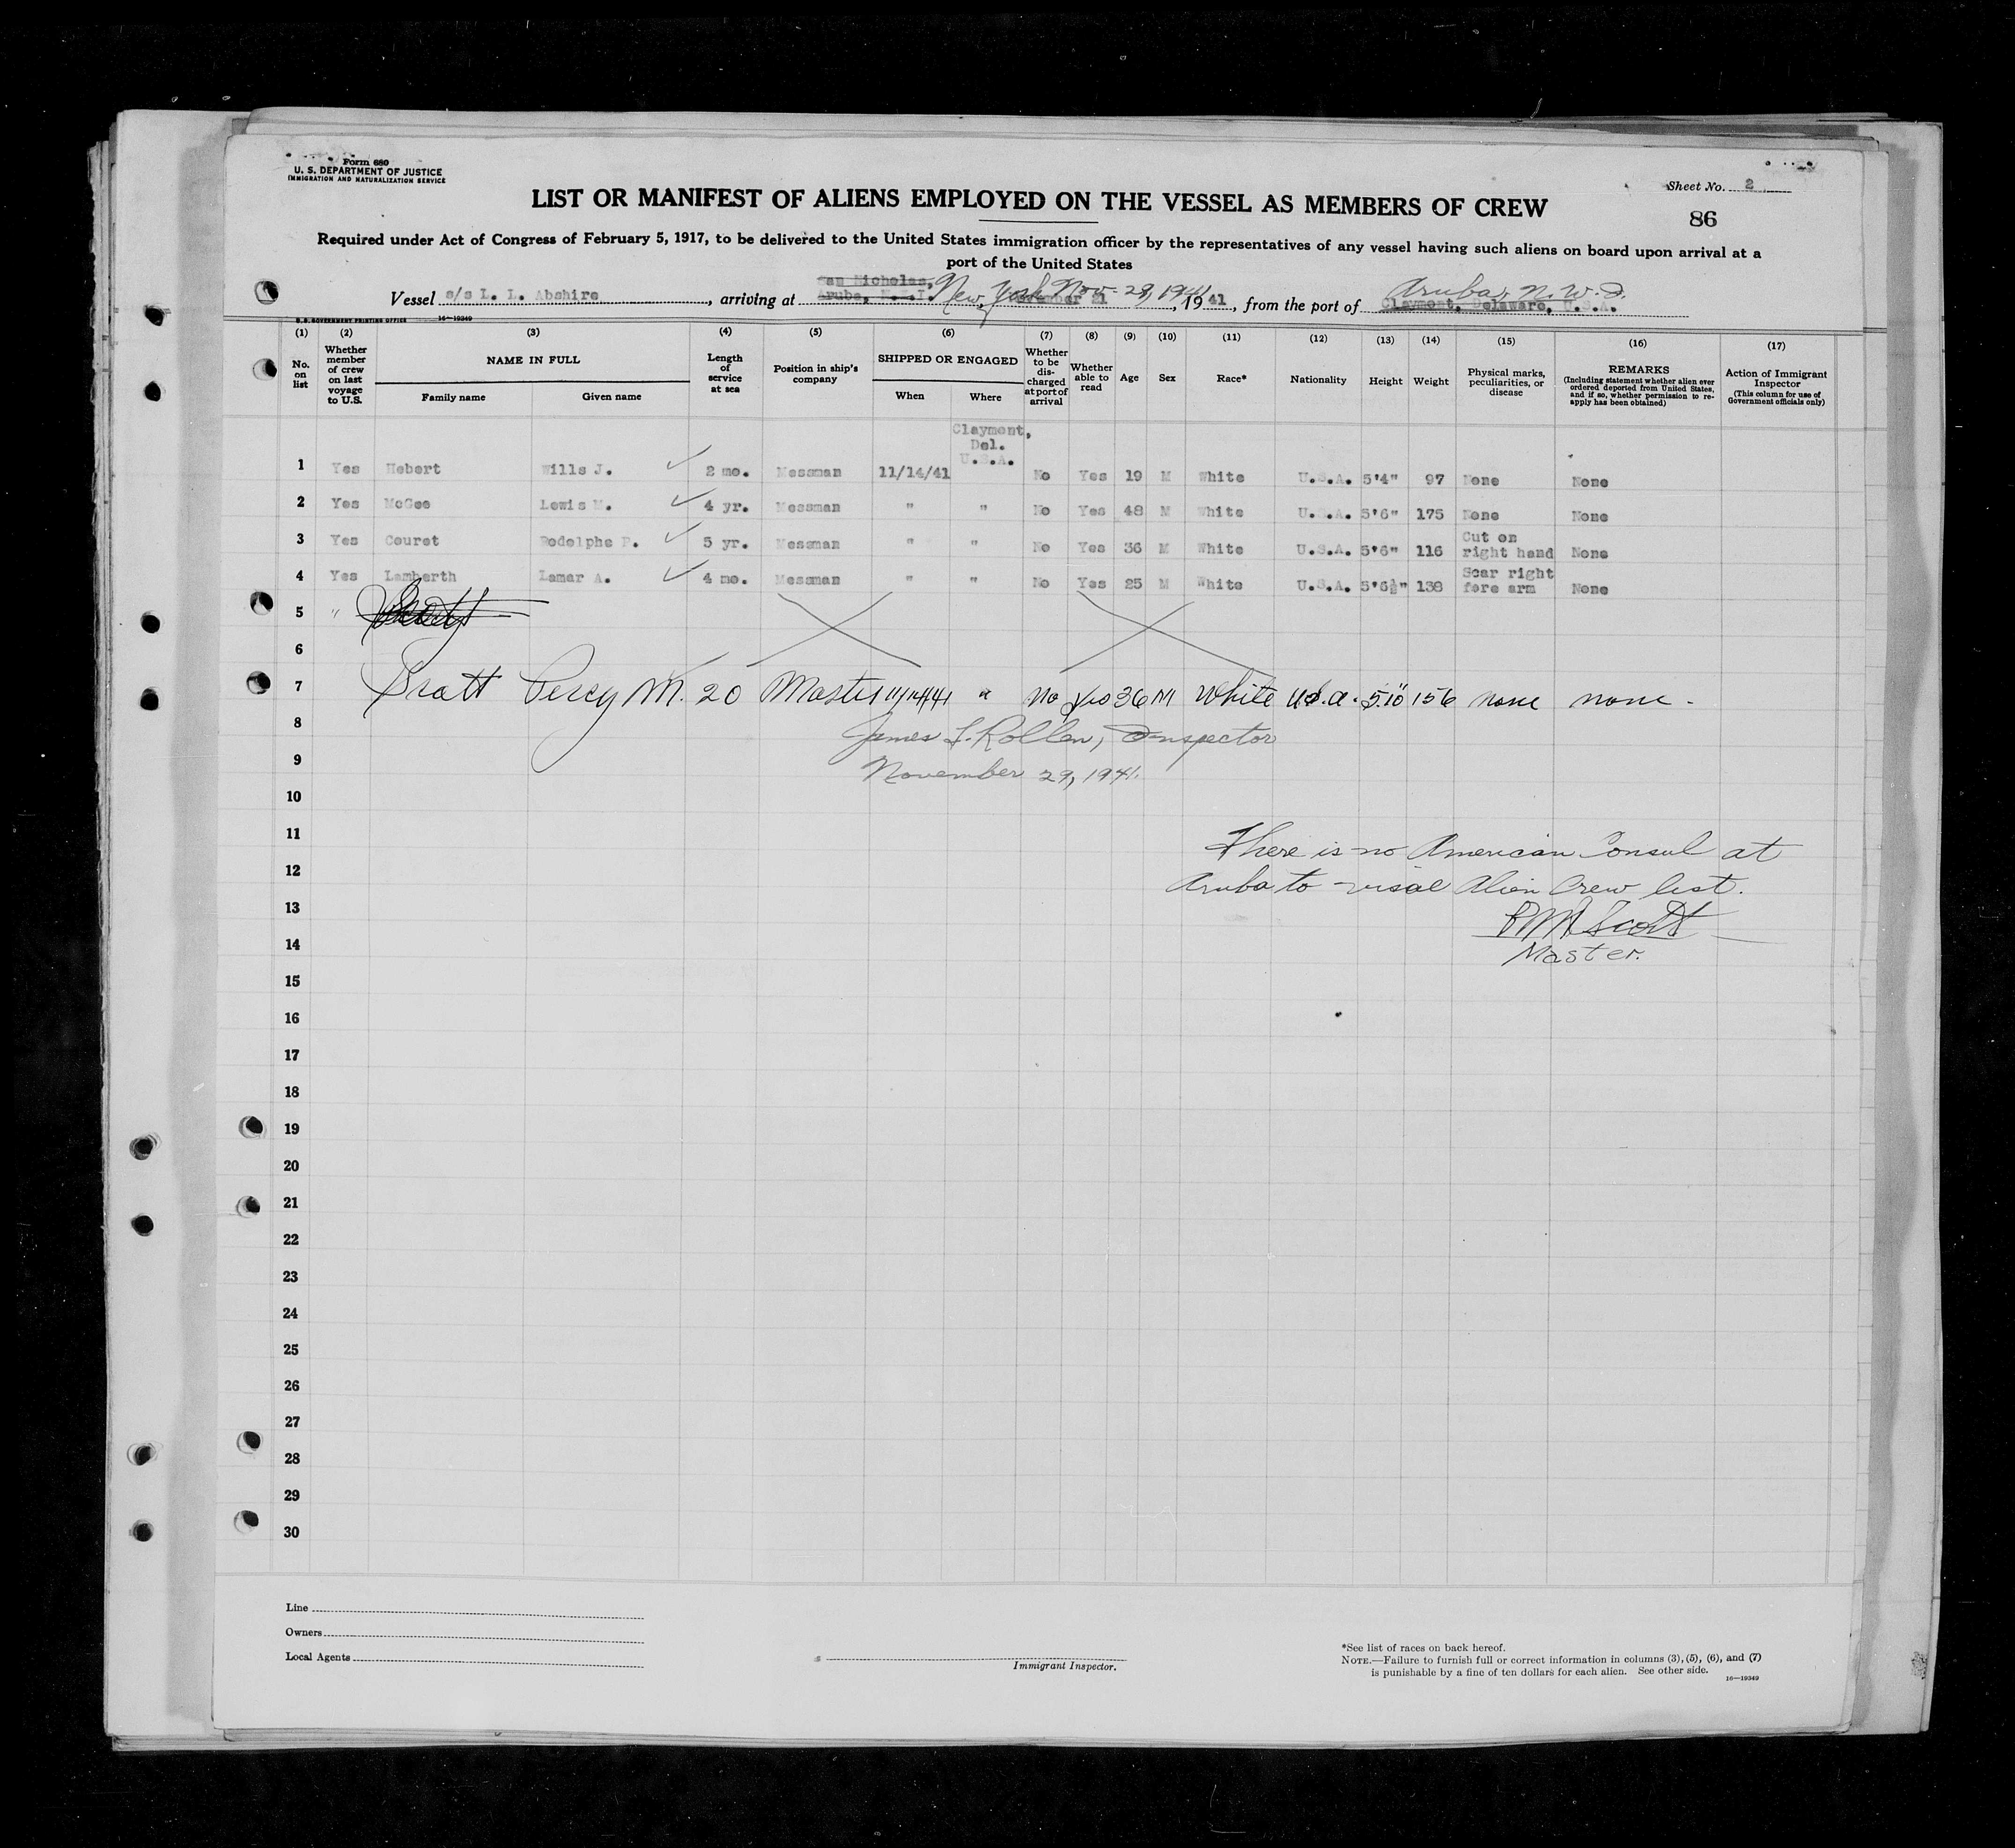 Form 680
U. S. DEPARTMENT OF JUSTICE
IMMIGRATION AND NATURALIZATION SERVICE
Sheet No. 2
86
LIST OR MANIFEST OF ALIENS EMPLOYED ON THE VESSEL AS MEMBERS OF CREW
Required under Act of Congress of February 5, 1917, to be delivered to the United States immigration officer by the representatives of any vessel having such aliens on board upon arrival at a
port of the United States
San Nicholas,
Vessel s/s L. L. Abshire, arriving at Aruba, N.W.I. New York Nov. 29, 1941, 1941, from the port of Claymont, Delaware, U.S.A.
Aruba, N.W.I.
U.S. GOVERNMENT PRINTING OFFICE 16—19349
(1) (2) (3) (4) (5) (6) (7) (8) (9) (10) (11) (12) (13) (14) (15) (16) (17)
No. on list
Whether member of crew on last voyage to U.S.
NAME IN FULL
Family name
Given name
Length of service at sea
Position in ship's company
SHIPPED OR ENGAGED
When
Where
Whether to be discharged at port of arrival
Whether able to read
Age
Sex
Race*
Nationality
Height
Weight
Physical marks, peculiarities, or disease
REMARKS
(Including statement whether alien ever ordered deported from United States, and if so, whether permission to reapply has been obtained)
Action of Immigrant Inspector
(This column for use of Government officials only)
Claymont,
Del.
U.S.A.
1 Yes Hebert Wills J. 2 mo. Messman 11/14/41 No Yes 19 M White U.S.A. 5'4" 97 None None
2 Yes McGee Lewis M. 4 yr. Messman " " No Yes 48 M White U.S.A. 5'6" 175 None None
3 Yes Couret Rodolphe P. 5 yr. Messman " " No Yes 36 M White U.S.A. 5'6" 116 Cut on right hand None
4 Yes Lamberth Lamar A. 4 mo. Messman " " No Yes 25 M White U.S.A. 5'6½" 138 Scar right fore arm None
5 "
6
7 Scott Percy M. 20 Master 11/14/41 " No Yes 36 M White U.S.A. 5'10" 156 none none.
8 James F. Rollen, Inspector
9 November 29, 1941.
10
11 There is no American Consul at
12 Aruba to visae Alien Crew list.
13 P M Scott
14 Master.
15
16
17
18
19
20
21
22
23
24
25
26
27
28
29
30
Line
Owners
Local Agents
Immigrant Inspector.
*See list of races on back hereof.
NOTE.—Failure to furnish full or correct information in columns (3), (5), (6), and (7)
is punishable by a fine of ten dollars for each alien. See other side.
16—19349